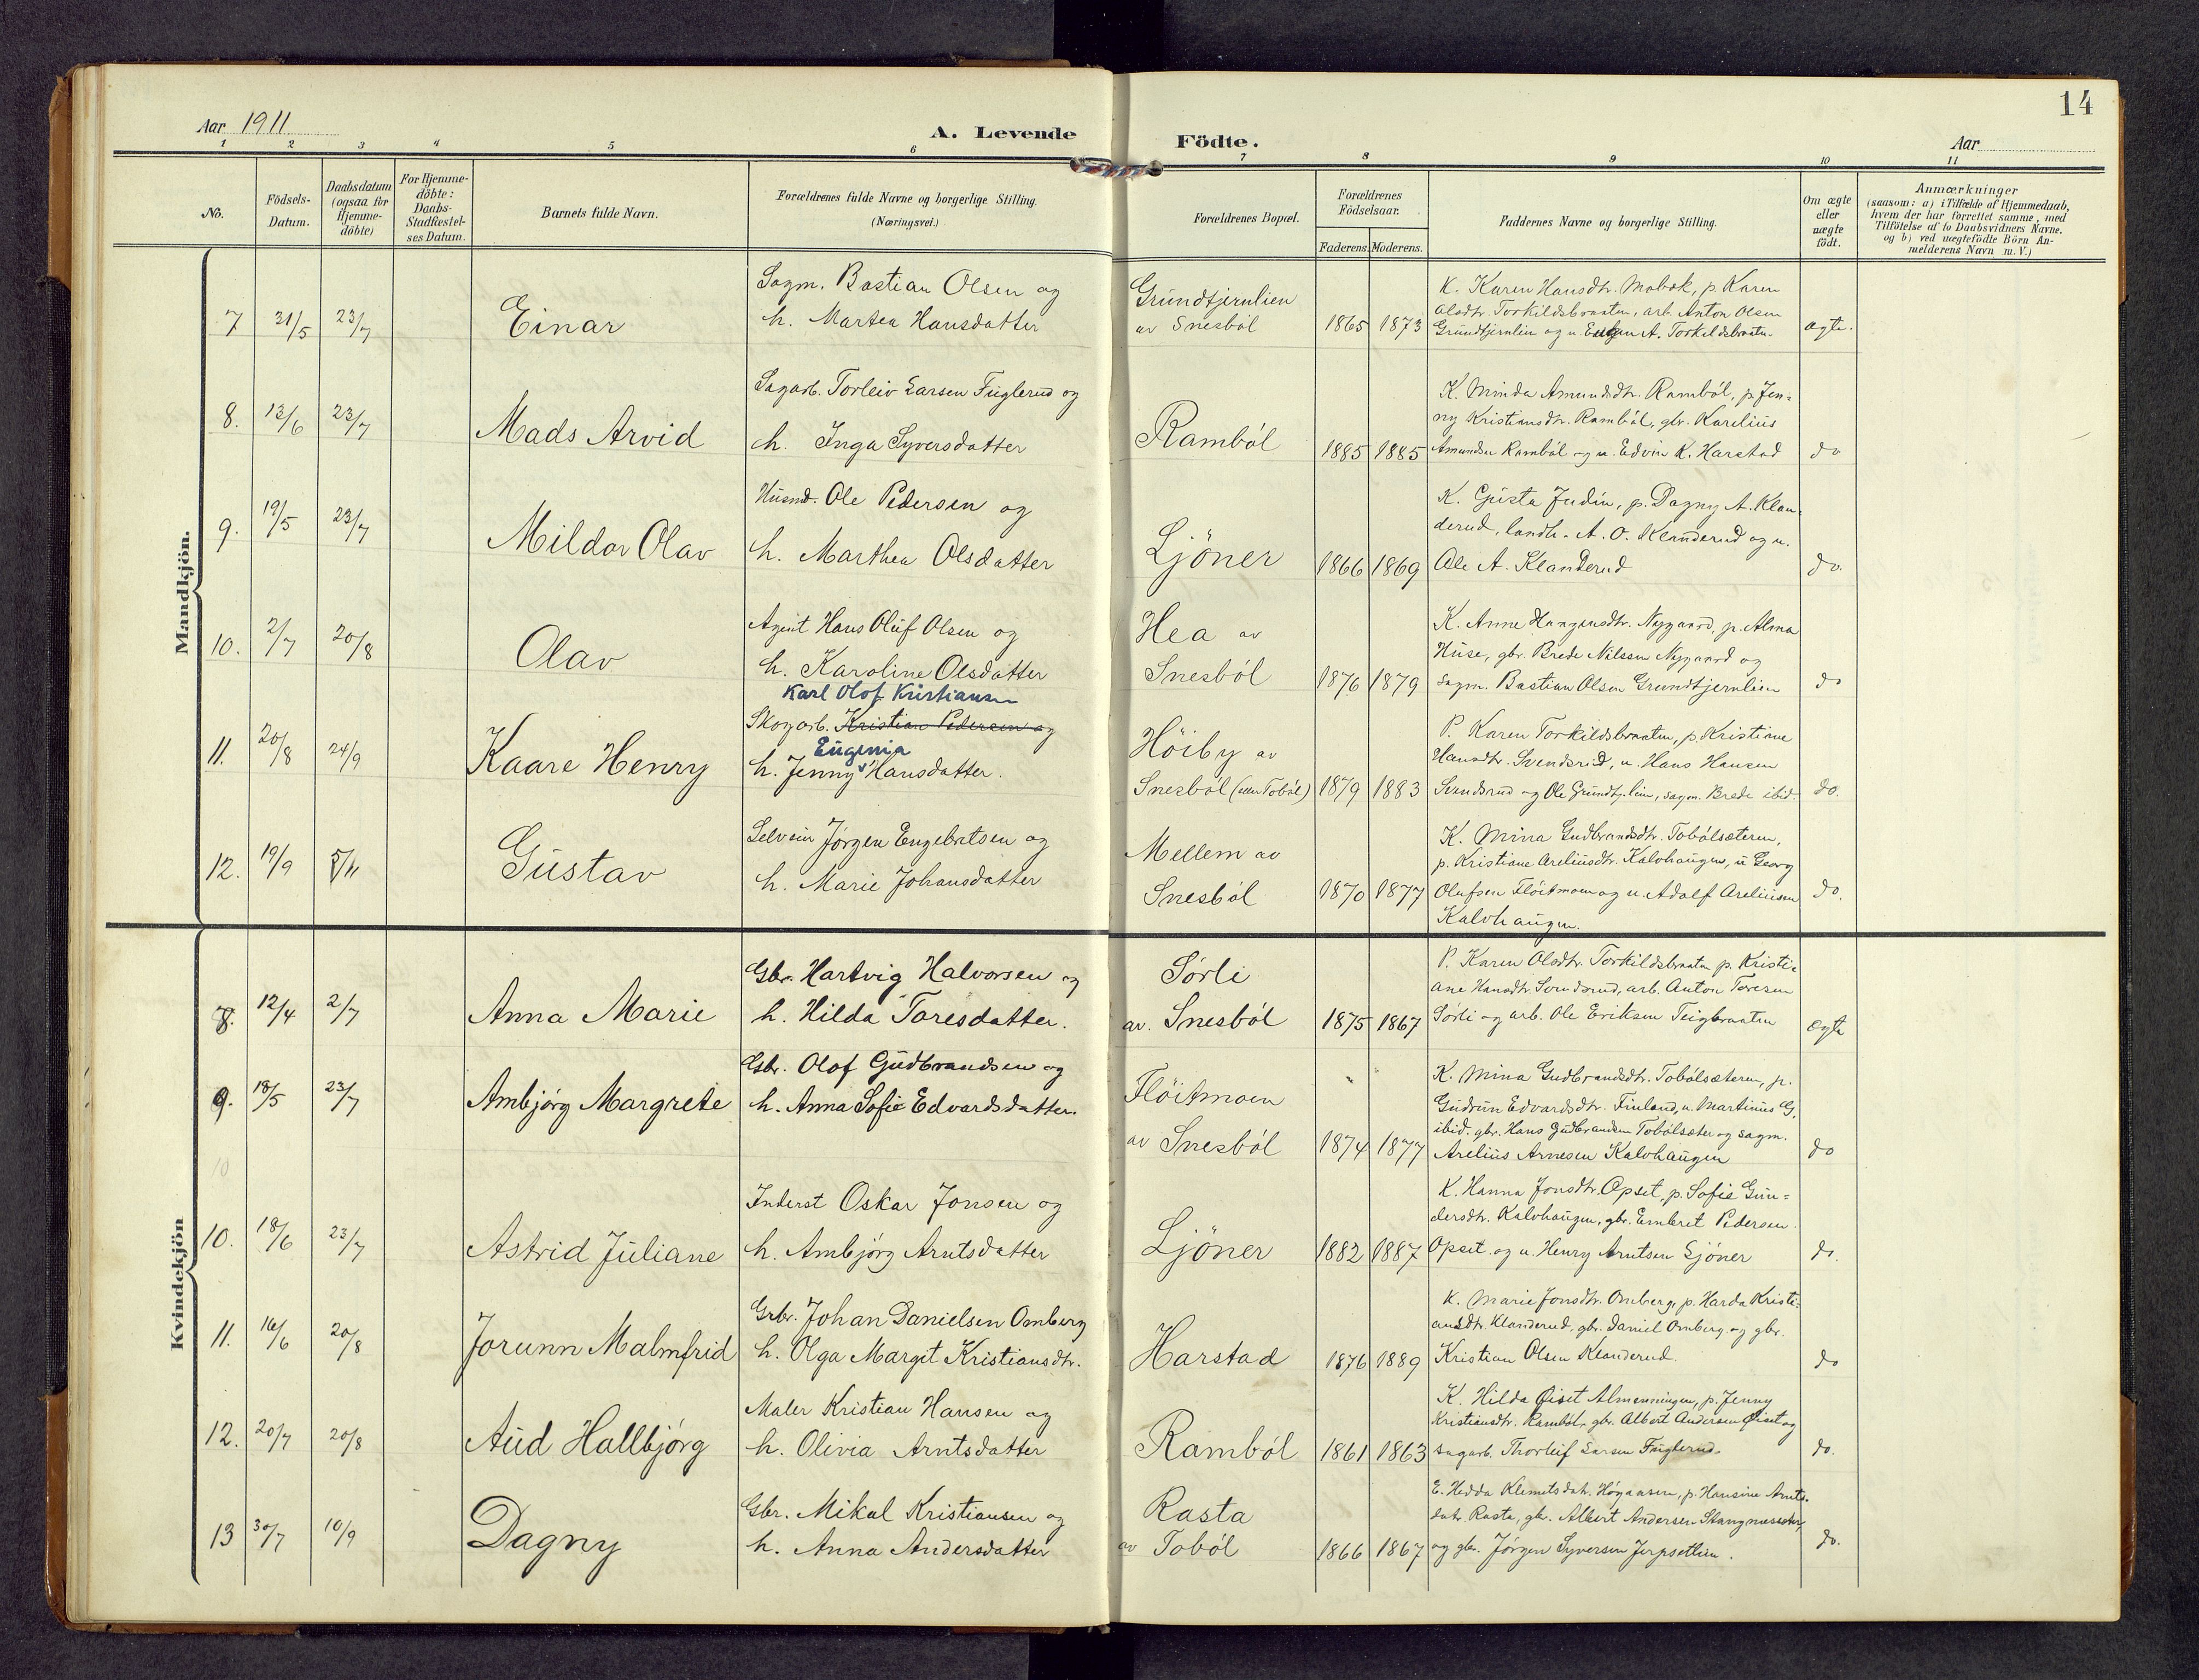 14
Aar 1911
A. Levende Födte.
Aar
1 2 3 4 5 6 7 8 9 10 11
No.
Födsels-
Datum.
Daabsdatum
(ogsaa for
Hjemme-
döbte)
For Hjemme-
döbte:
Daabs-
Stadfæstel-
ses Datum.
Barnets fulde Navn.
Forældrenes fulde Navne og borgerlige Stilling.
(Næringsvei.)
Forældrenes Bopæl.
Forældrenes
Födselsaar.
Faderens. Moderens.
Faddernes Navne og borgerlige Stilling.
Om ægte
eller
uægte
födt.
Anmærkninger
(saasom: a) i Tilfælde af Hjemmedaab,
hvem der har forrettet samme, med
Tilföielse af to Daabsvidners Navne.
og b) ved uægtefödte Börn An-
melderens Navn m. V.)
Mandkjön.
7 31/5 23/7
Einar
Sagm. Bastian Olsen og
h. Martea Hansdatter
Grundtjernlien
av Snesböl
1865 1873
K. Karen Hansdtr. Mobæk, p. Karen
Olsdtr. Torkildsbraaten, arb. Anton Olsen
Grundtjernlien og u. A. Torkildsbraatn.
ægte.
8. 13/6 23/7
Mads Arvid
Sagarb. Torleiv Larsen Fuglerud og
h. Inga Syversdatter
Ramböl
1885 1885
K. Minda Amundsdtr. Ramböl, p. Jen-
ny Kristiansdtr. Ramböl, gbr. Karelius
Amundsen Ramböl og u. Edvin K. Harstad
do
9. 19/5 23/7
Mildor Olav
Husmd. Ole Pedersen og
h. Marthea Olsdatter
Ljöner
1866 1869
K. Gusta Judin, p. Dagny A. Klan-
derud, landh. A. O. Klanderud og u.
Ole A. Klanderud
do.
10. 2/7 20/8
Olav
Agent Hans Oluf Olsen og
h. Karoline Olsdatter
Hea av
Snesböl
1876 1879
K. Anne Hansdtr. Nygaard, p. Alma
Huse, gbr. Brede Nilssen Nygaard og
sagm. Bastian Olsen Grundtjernlien
do
11. 20/8 24/9
Kaare Henry
Karl Olof Kristiansen
Skogarb. Kristian Pedersen og
Eugenia
h. Jenny Hansdatter.
Höiby av
Snesböl (Toböl)
1879 1883
P. Karen Torkildsbraaten, p. Kristiane
Hansdtr. Svendsrud, u. Hans Hansen
Svendsrud og Ole Grundtj.lien, sagm. Brede ibid.
do.
12. 19/9 5/11
Gustav
Selveier Jörgen Engebretsen og
h. Marie Johansdatter
Mellem av
Snesböl
1870 1877
K. Mina Gudbrandsdtr. Tobölsæteren,
p. Kristiane Areliusdtr. Kalvhaugen, u. Georg
Olufsen Flöitmoen og u. Adolf Areliussen
Kalvhaugen.
do.
Kvindekjön
8. 12/4 2/7
Anna Marie
Gbr. Hartvig Halvorsen og
h. Hilda Toresdatter.
Sörli
av. Snesböl
1875 1867
P. Karen Olsdtr. Torkildsbraaten p. Kristi-
ane Hansdtr Svendsrud, arb. Anton Toresen
Sörli og arb. Ole Eriksen Teigbraaten
ægte
9. 18/5 23/7
Ambjörg Margrete
Gbr. Olof Gudbrandsen og
h. Anna Sofie Edvardsdatter.
Flöitmoen
av Snesböl
1874 1877
K. Mina Gudbrandsdtr. Tobölsæteren, p.
Gudrun Edvardsdtr. Finland, u. Martinius G.
ibid. gbr. Hans Gudbrandsen Tobölsæter og sagm.
Arelius Arnesen Kalvhaugen
do
10
10. 18/6 23/7
Astrid Juliane
Inderst Oskar Jonsen og
h. Ambjörg Arntsdatter
Ljöner
1882 1887
K. Hanna Jonsdtr. Opset, p. Sofie Gun-
dersdtr. Kalvhaugen, gbr. Embret Pedersen
Opset og u. Henry Arntsen Ljöner
do.
11. 16/6 20/8
Jorunn Malmfrid
Grbr. Johan Danielsen Omberg
h. Olga Margit Kristiansdtr.
Harstad
1876 1889
K. Marie Jonsdtr. Omberg, p. Harda Kristi-
ansdtr. Klanderud, gbr. Daniel Omberg og gbr.
Kristian Olsen Klanderud.
do
12. 20/7 20/8
Aud Hallbjörg
Maler Kristian Hansen og
h. Olivia Arntsdatter
Ramböl
1861 1863
K. Hilda Öiset Almenningen, p. Jenny
Kristiansdtr. Ramböl, gbr. Albert Andersen Öiset og
sagarb. Thorleif Larsen Fuglerud.
do.
13 30/7 10/9
Dagny
Gbr. Mikal Kristiansen og
h. Anna Andersdatter
Rasta
av Toböl
1866 1867
E. Hedda Klemetsdatr. Högaasen, p. Hansine Arnts-
datr Rasta, gbr. Albert Andersen Stangnæsseter,
og gbr. Jörgen Syversen Jerpsetlien.
do.